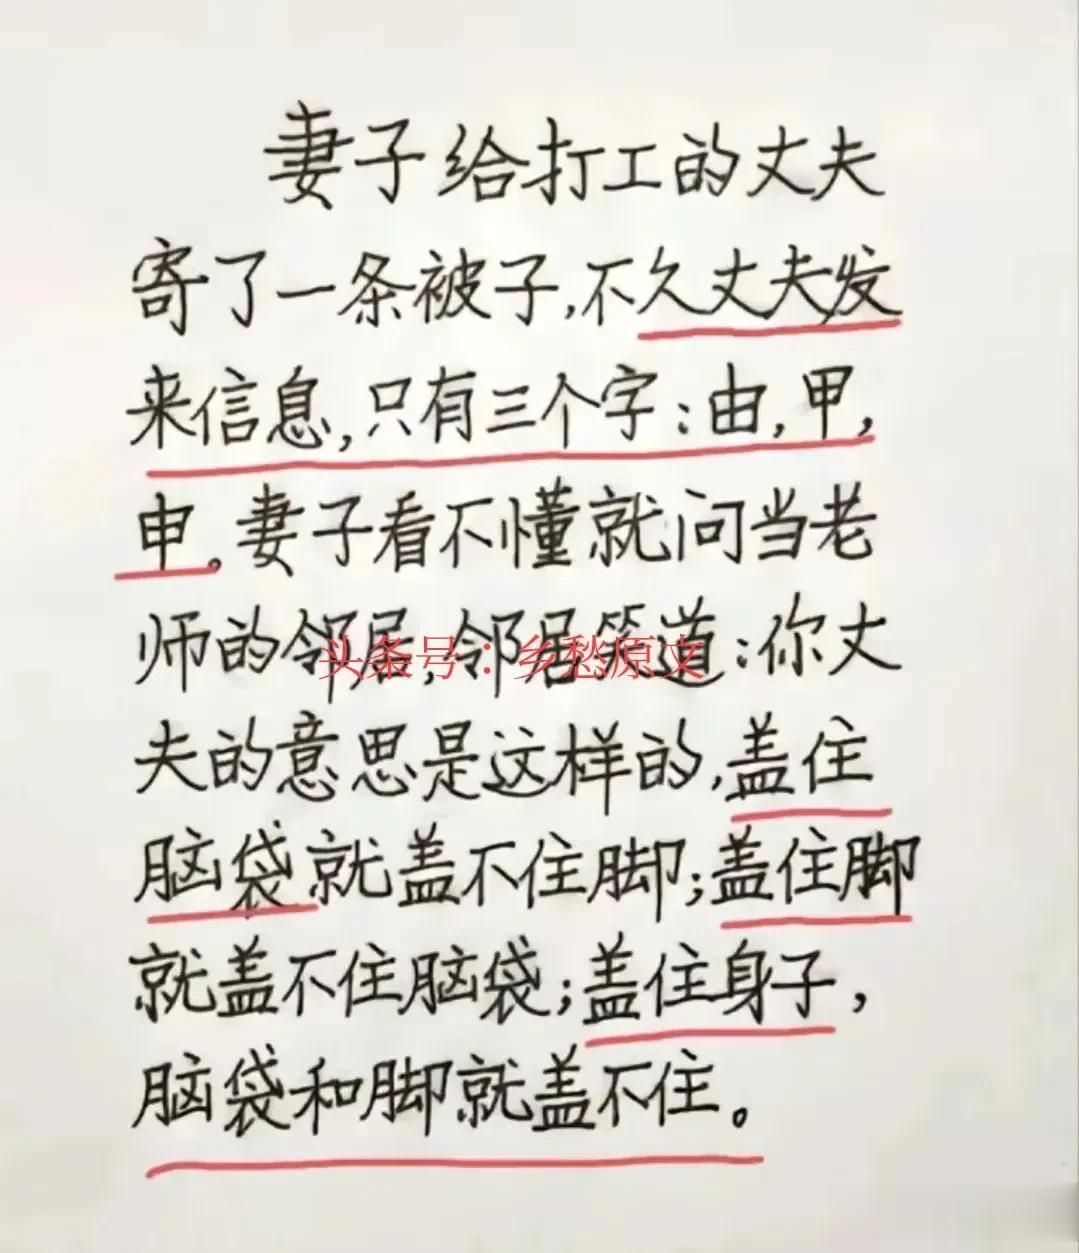 妻子给打工的丈夫
寄了一条被子,不久丈夫发
来信息,只有三个字:由,甲,
申。妻子看不懂就问当老
师的邻居,邻居笑道:你丈
头条号:乡愁原文
夫的意思是这样的,盖住
脑袋就盖不住脚;盖住脚
就盖不住脑袋;盖住身子,
脑袋和脚就盖不住。